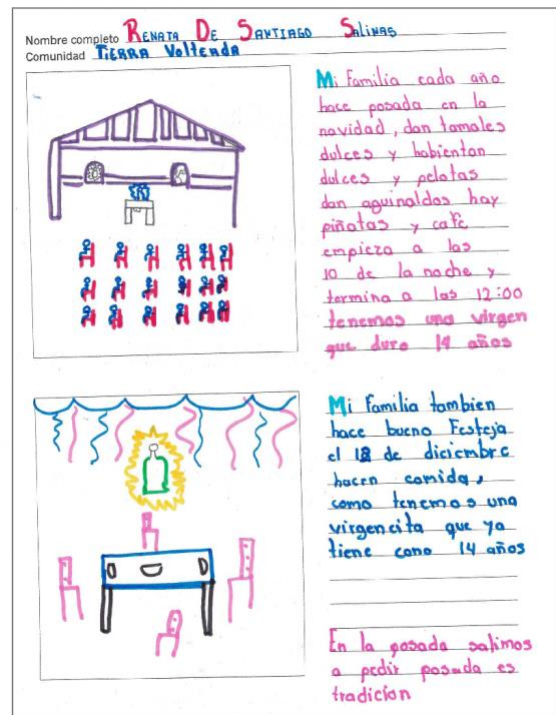 Nombre completo RENATA DE SANTIAGO SALINAS
Comunidad TIERRA VOLTEADA
Mi familia cada año
hace posada en la
navidad, dan tamales
dulces y habientan
dulces y pelotas
dan aguinaldos hay
piñatas y cafe
empieza a las
10 de la noche y
termina a las 12:00
tenemos una virgen
que duro 14 años
Mi familia tambien
hace bueno Festeja
el 12 de diciembre
hacen comida,
como tenemos una
virgencita que ya
tiene como 14 años
En la posada salimos
a pedir posada es
tradicion